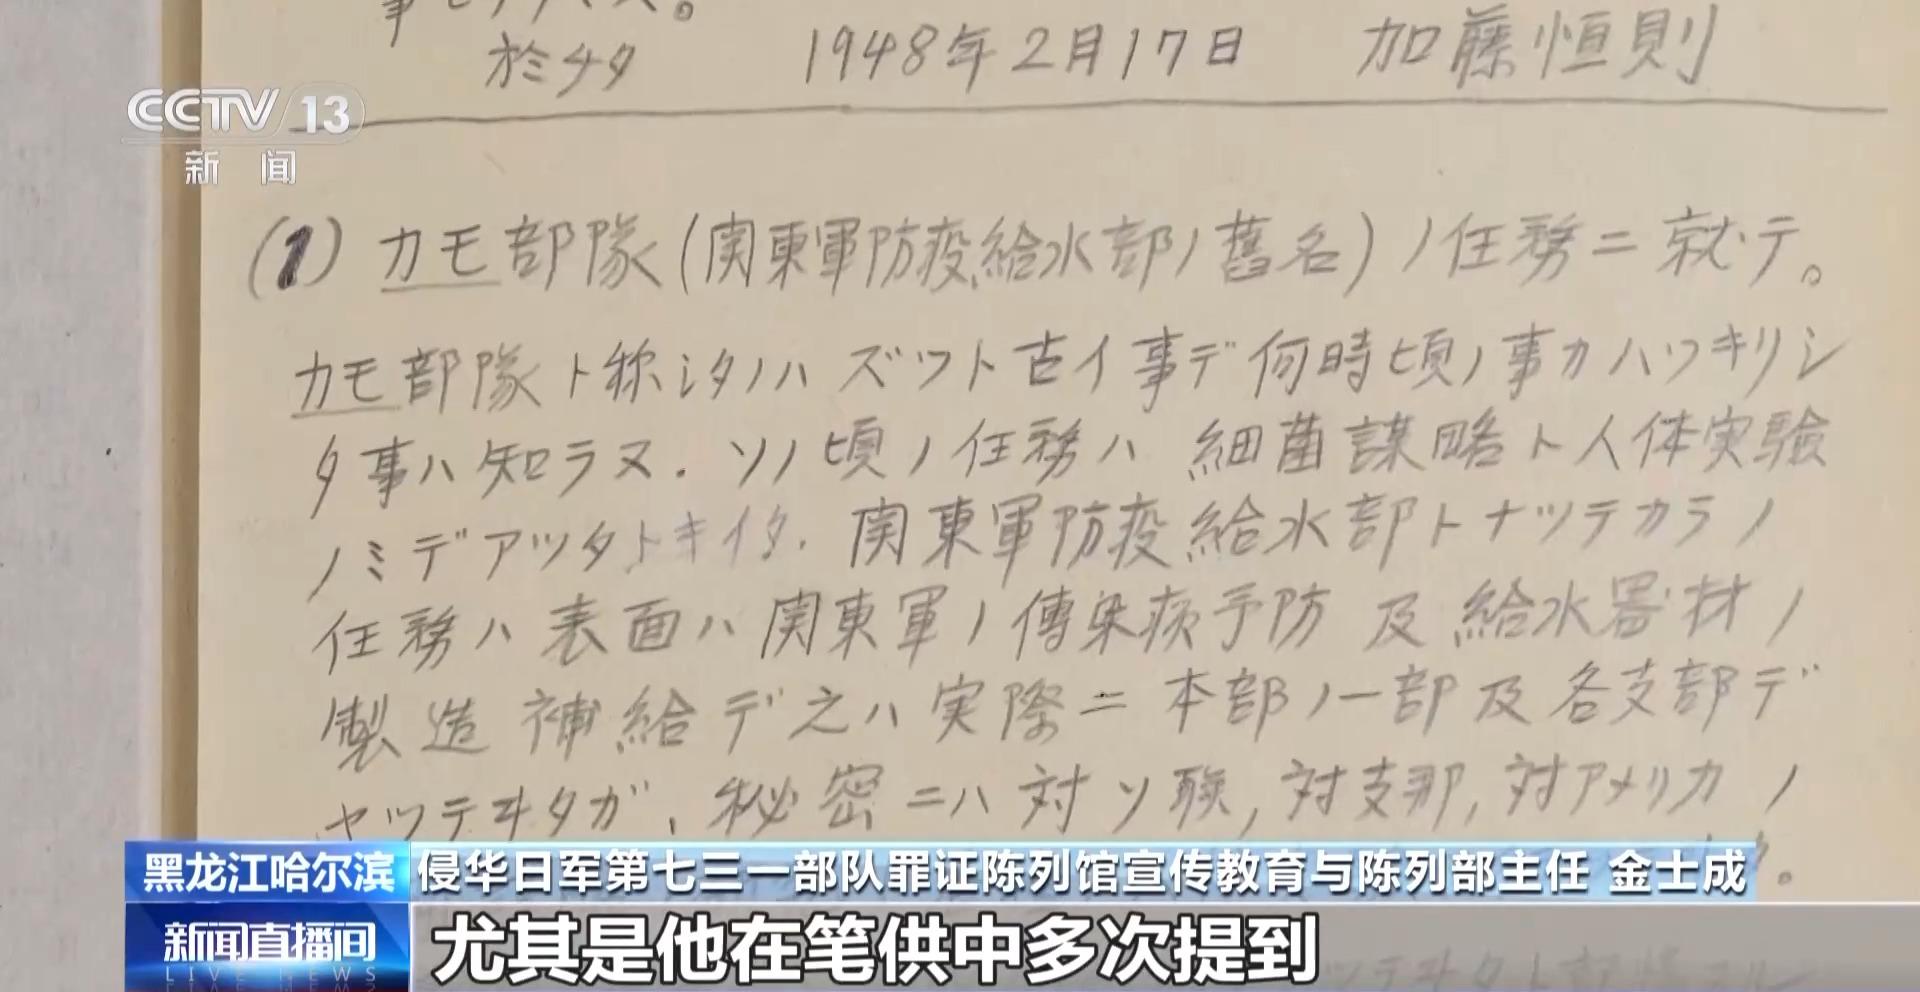 於チタ 1948年2月17日 加藤恒則
CCTV 13
新闻
(1) カモ部隊(関東軍防疫給水部ノ舊名)ノ任務ニ就テ。
カモ部隊ト称シタノハ ズツト古イ事デ何時頃ノ事カハツキリシ
タ事ハ知ラヌ. ソノ頃ノ任務ハ 細菌謀略ト人体実験
ノミデアツタトキイタ. 関東軍防疫給水部トナツテカラノ
任務ハ表面ハ関東軍ノ傳染病予防及給水器材ノ
製造補給デ之ハ実際ニ本部ノ一部及各支部デ
ヤツテヰタガ、秘密ニハ対ソ联,対支那,対アメリカノ
黑龙江哈尔滨 侵华日军第七三一部队罪证陈列馆宣传教育与陈列部主任 金士成
新闻直播间
LIVE NEWS
尤其是他在笔供中多次提到